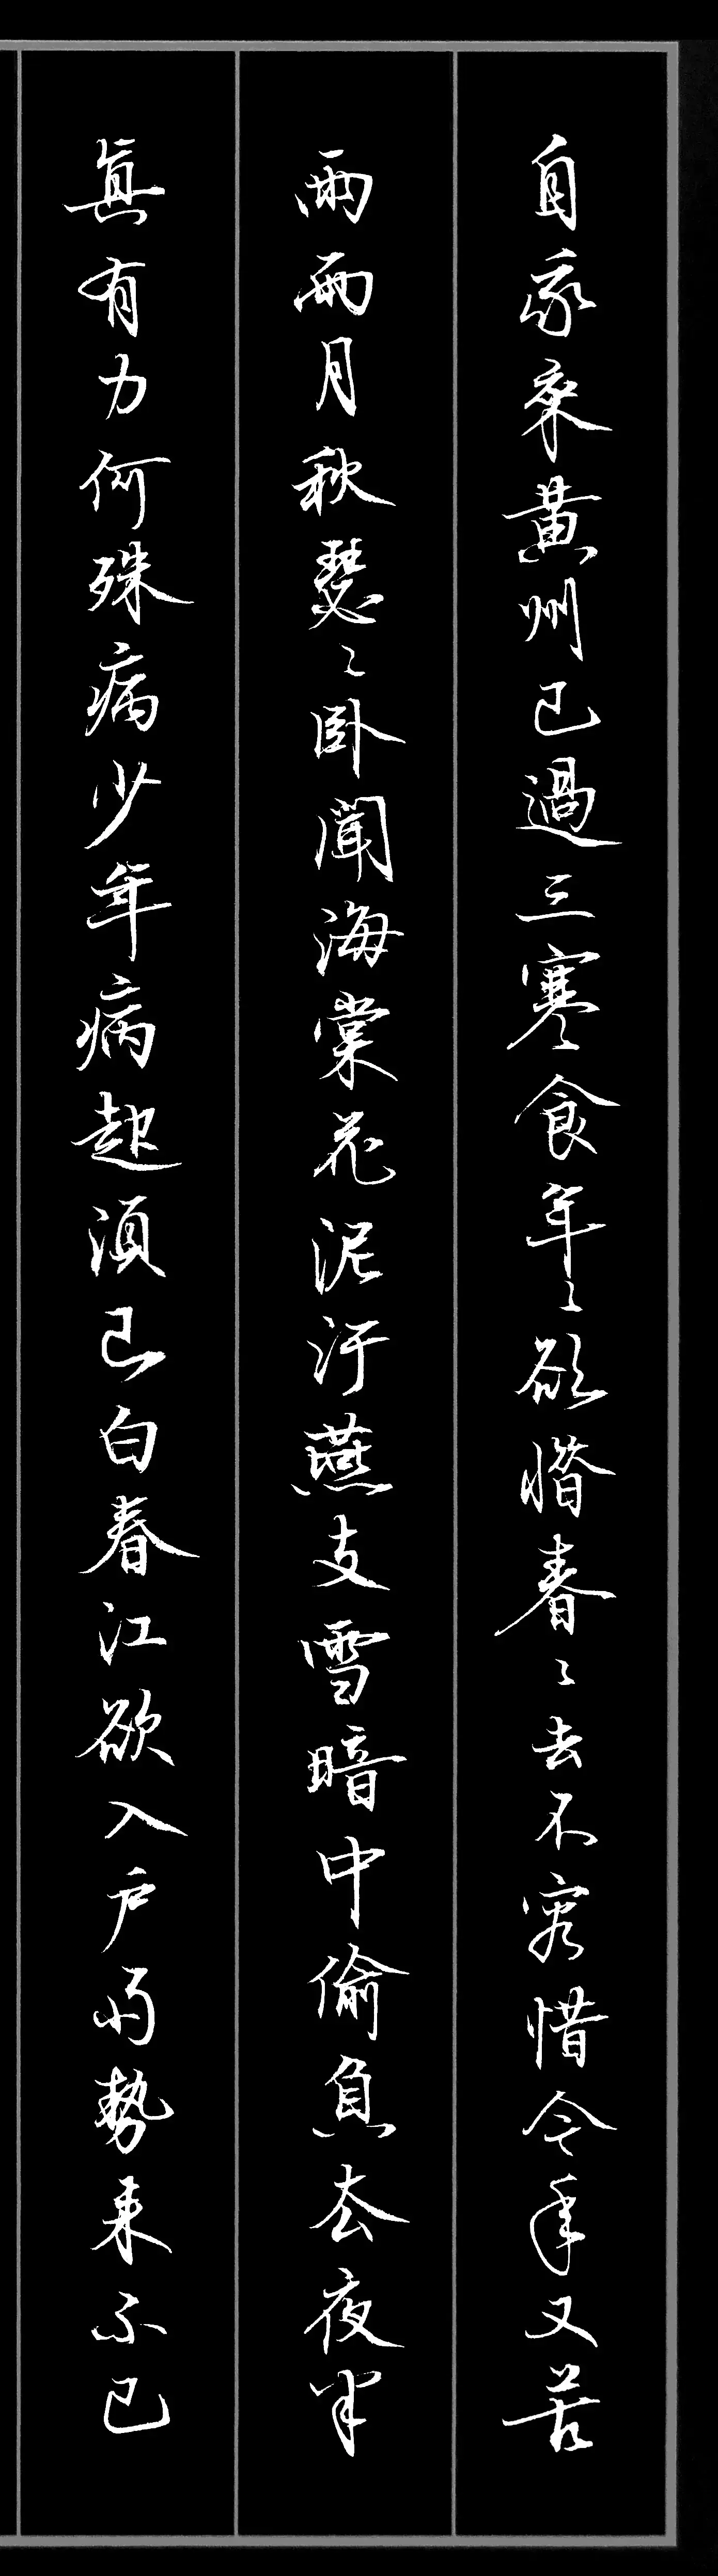 自我来黄州已過三寒食年〻欲惜春〻去不容惜今年又苦
雨兩月秋瑟〻卧聞海棠花泥汙燕支雪暗中偷負去夜半
真有力何殊病少年病起須已白春江欲入戶雨勢来不已